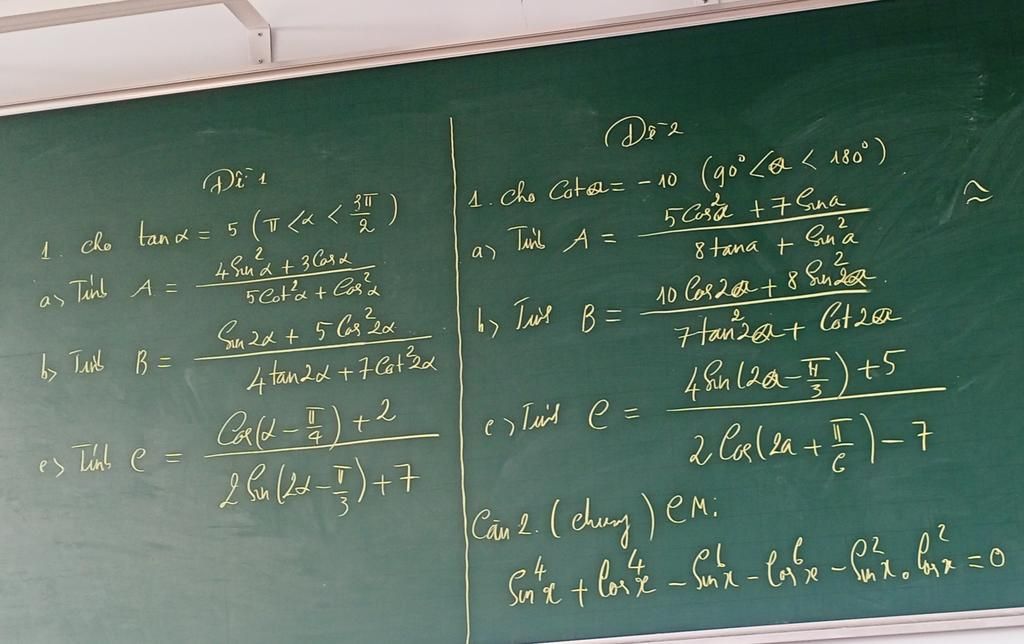 Đề 1
1. Cho tanα = 5 (π < α < 3π/2)
a, Tính A = (4 Sin²α + 3 Cosα) / (5 Cot²α + Cos²α)
b, Tính B = (Sin2α + 5 Cos²2α) / (4 tan2α + 7 Cot²2α)
c, Tính C = (Cos(α - π/4) + 2) / (2 Sin(2α - π/3) + 7)
Đề 2
1. Cho Cota = -10 (90° < a < 180°)
a, Tính A = (5 Cos²a + 7 Sina) / (8 tana + Sin²a)
b, Tính B = (10 Cos2a + 8 Sin²2a) / (7 tan²2a + Cot2a)
c, Tính C = (4 Sin(2a - π/3) + 5) / (2 Cos(2a + π/6) - 7)
≈
Câu 2. (chung) CM:
Sin⁴x + Cos⁴x - Sin⁶x - Cos⁶x - Sin²x . Cos²x = 0